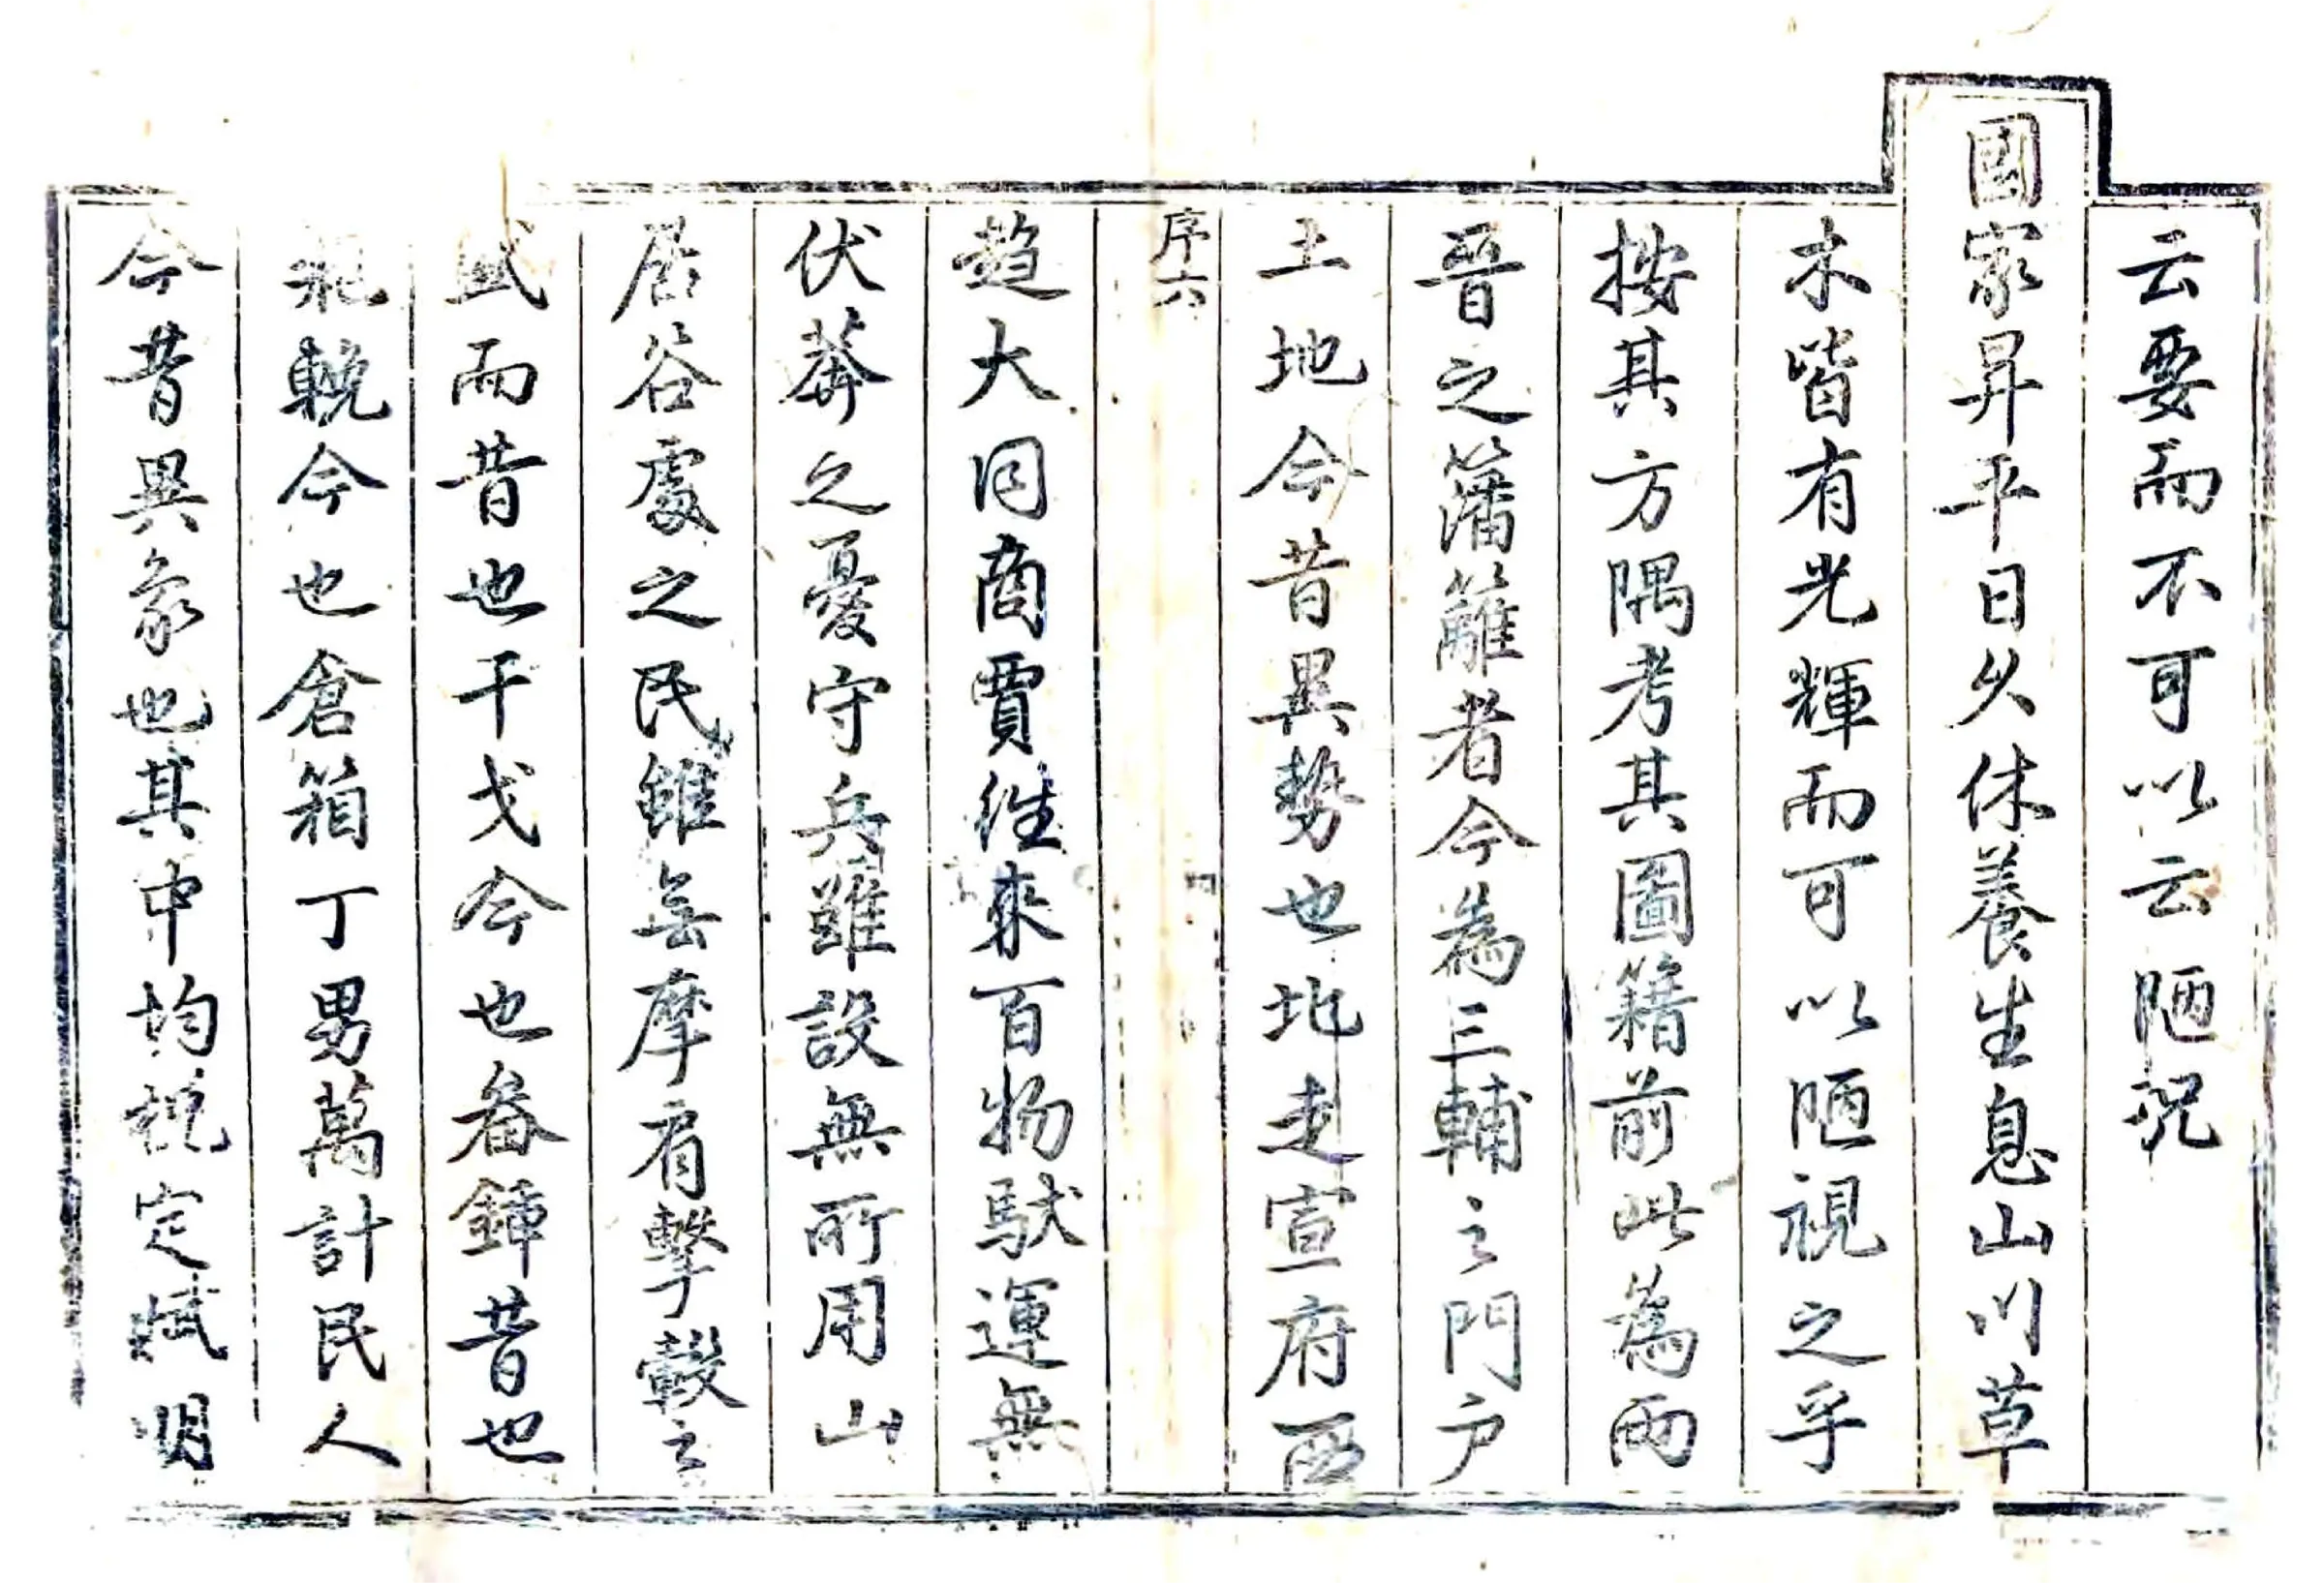 云要而不可以云陋況
國家昇平日久休養生息山川草
木皆有光輝而可以陋視之乎
按其方隅考其圖籍前此為兩
晉之藩籬者今為三輔之門户
土地今昔異勢也北走宣府西
序六
趋大同商賈徃來百物馱運無
伏莽之憂守兵雖設無所用山
居谷處之民雖無摩肩擊轂之
盛而昔也干戈今也畚鍤昔也
輗今也倉箱丁男萬計民人
今昔異象也其中均稅定賦明